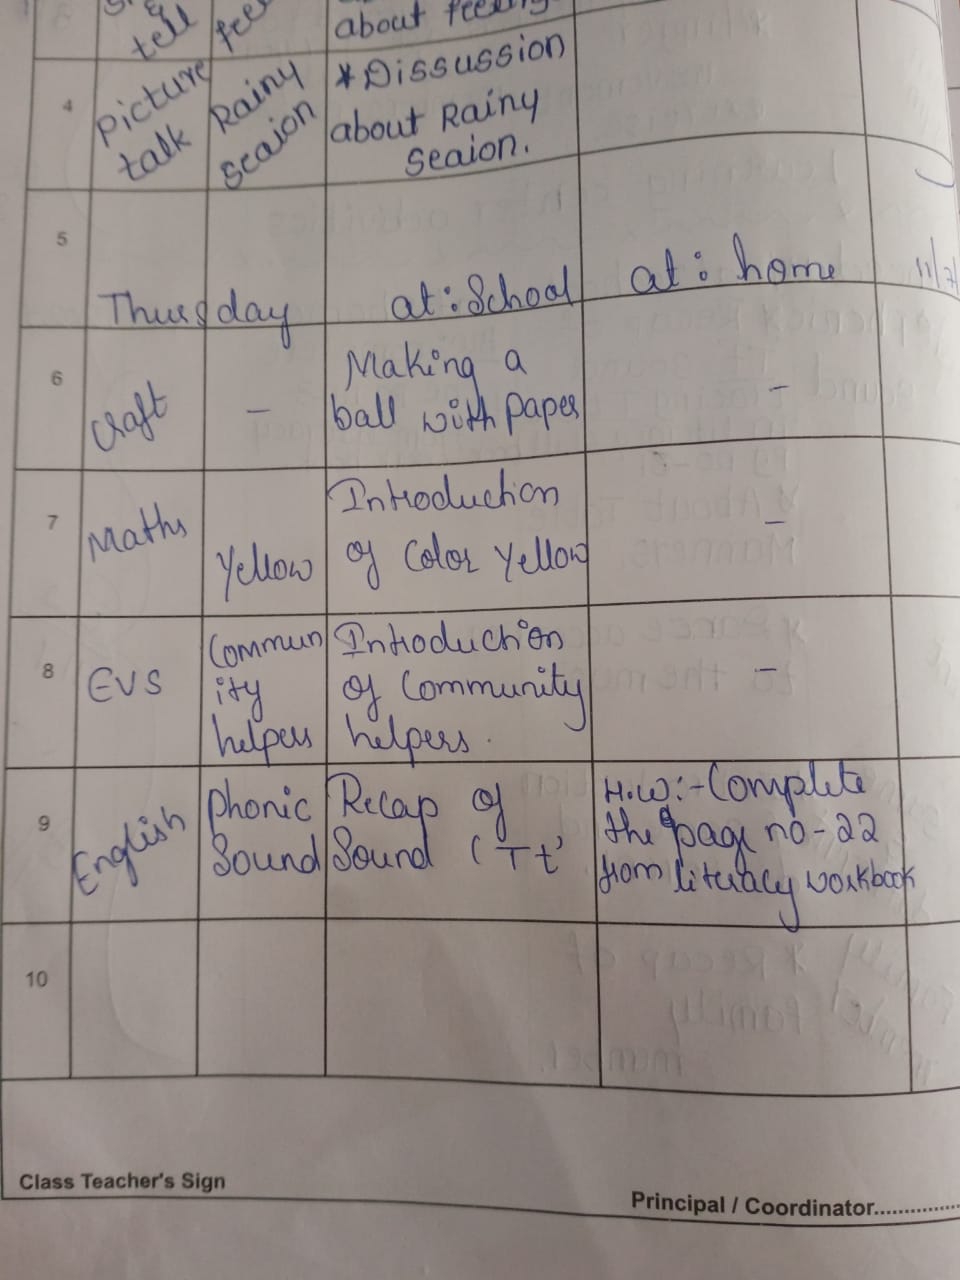 tell
about feeling
4
Picture
talk
Rainy
seaion
*Dissussion
about Rainy
Seaion.
5
Thursday at:School at: home
6
Craft
-
Making a
ball with paper
-
7
Maths
Yellow
Introduction
of Color yellow
-
8
EVS
Commun
ity
helpers
Introduction
of Community
helpers.
-
9
English
Phonic
Sound
Recap of
Sound (Tt)
H.W:-Complete
the page no-22
from literacy workbook
10
Class Teacher's Sign
Principal / Coordinator..............